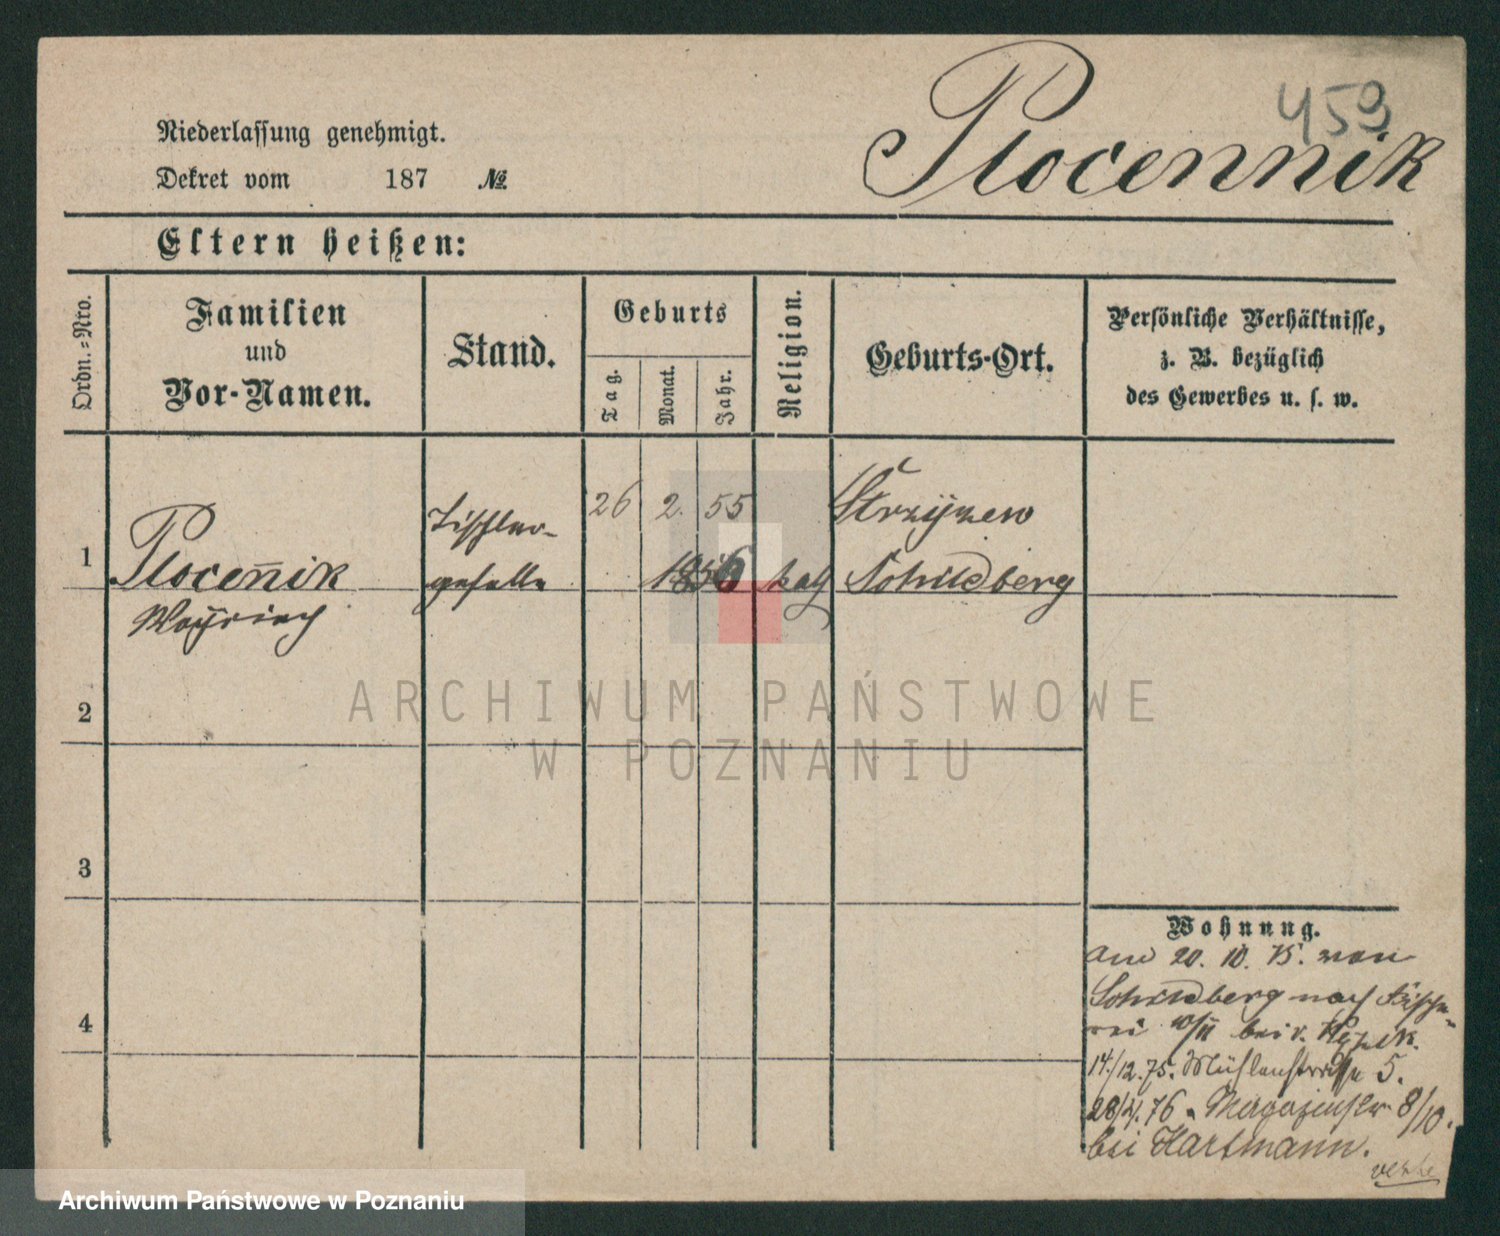 459
Plocennik
Niederlassung genehmigt.
Dekret vom 187 №
Eltern heißen:
Ordn.-Nro.
Familien
und
Vor-Namen.
Stand.
Geburts
Tag.
Monat.
Jahr.
Religion.
Geburts-Ort.
Persönliche Verhältnisse,
z. B. bezüglich
des Gewerbes u. s. w.
1
Plocen̅ik
Tischler-
geselle
26 2. 55
1856
kath
Strzyzew
Schildberg
2
3
4
Wohnung.
am 20. 10. 75. von
Schildberg nach Fische-
rei 10/11 bei v.
14/12. 75. Mühlenstraße 5.
28/4. 76. Magazinstr 8/10.
bei Hartmann.
ARCHIWUM PAŃSTWOWE
W POZNANIU
Archiwum Państwowe w Poznaniu